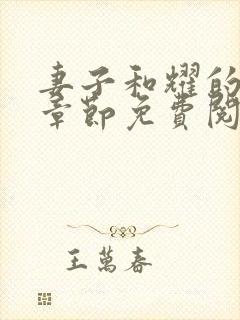 妻子和耀的
章節免費閱
王萬春